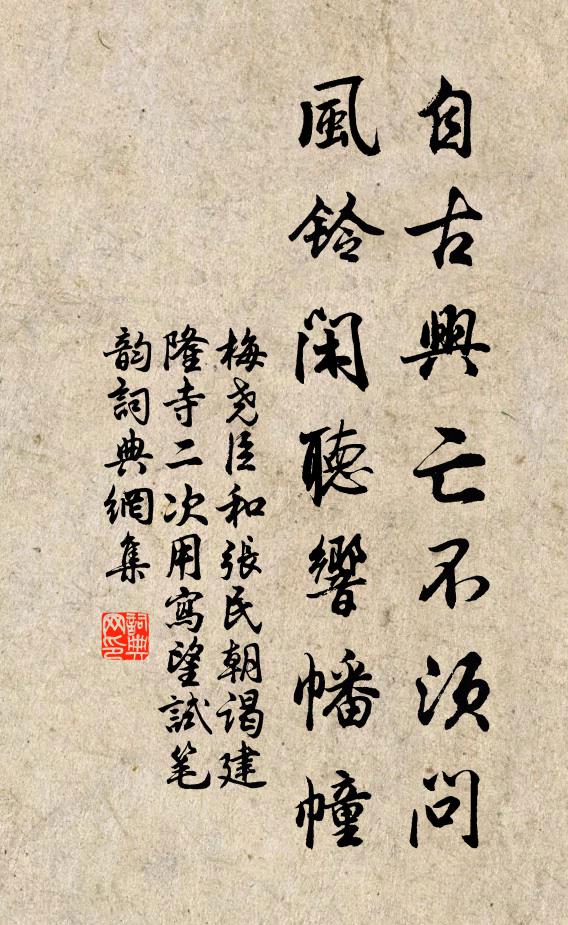 自古興亡不須問
風鈴閑聽響幡幢
梅堯臣和張民朝謁建
隆寺二次用寫望試笔
韵詞典網集
詞典网印